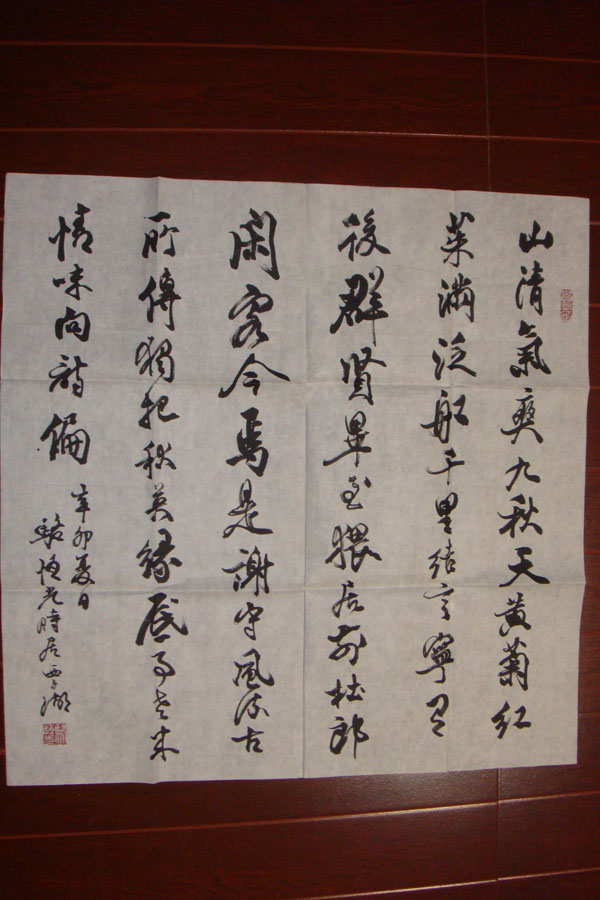 山清氣爽九秋天黃菊紅
茱滿泛船千里結言寧有
後群賢畢至猥居前杜郎
閑客今焉是謝守風流古
所傳獨把秋英緣底事老來
情味向詩偏
辛卯夏日
駱恒光時居西子湖